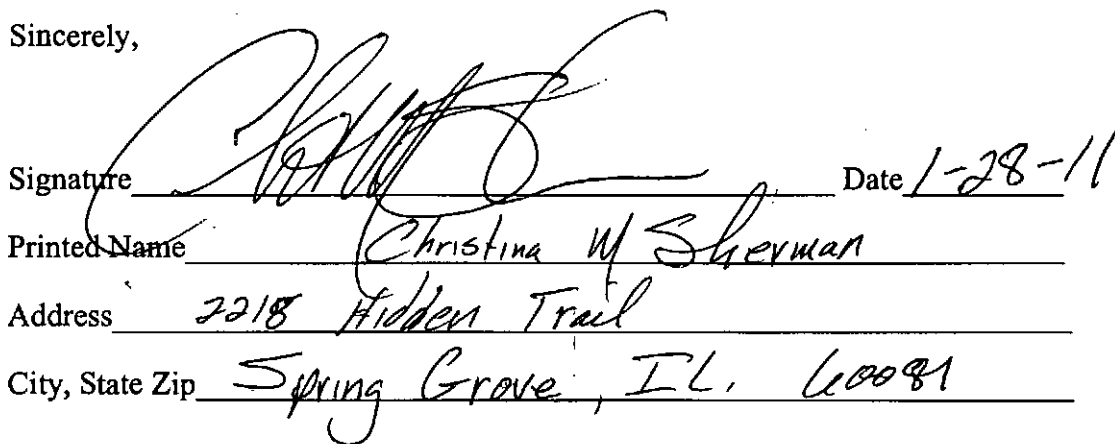 Sincerely,
Signature Date 1-28-11
Printed Name Christina M Sherman
Address 2218 Hidden Trail
City, State Zip Spring Grove, IL. 60081